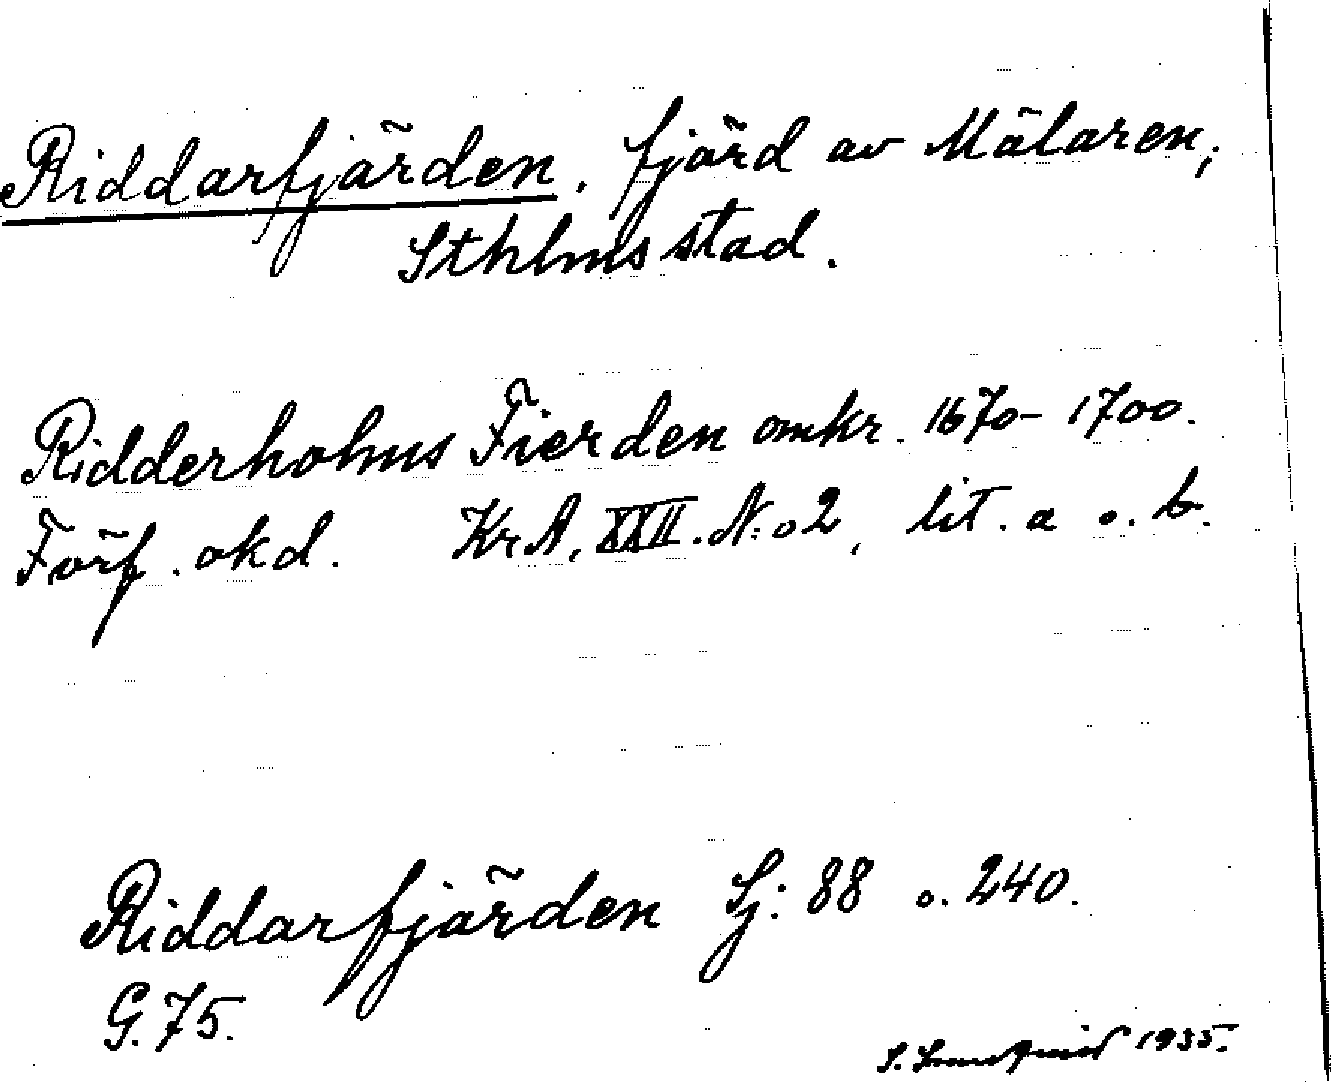 Riddarfjärden. fjärd av Mälaren,
Sthlms stad.
Ridderholms Fierden omkr. 1670-1700.
Förf. okd. KrA, XXII. N:o 2, lit. a o. b.
Riddarfjärden Sj: 88 o. 240.
G. 75.
S. 1935.